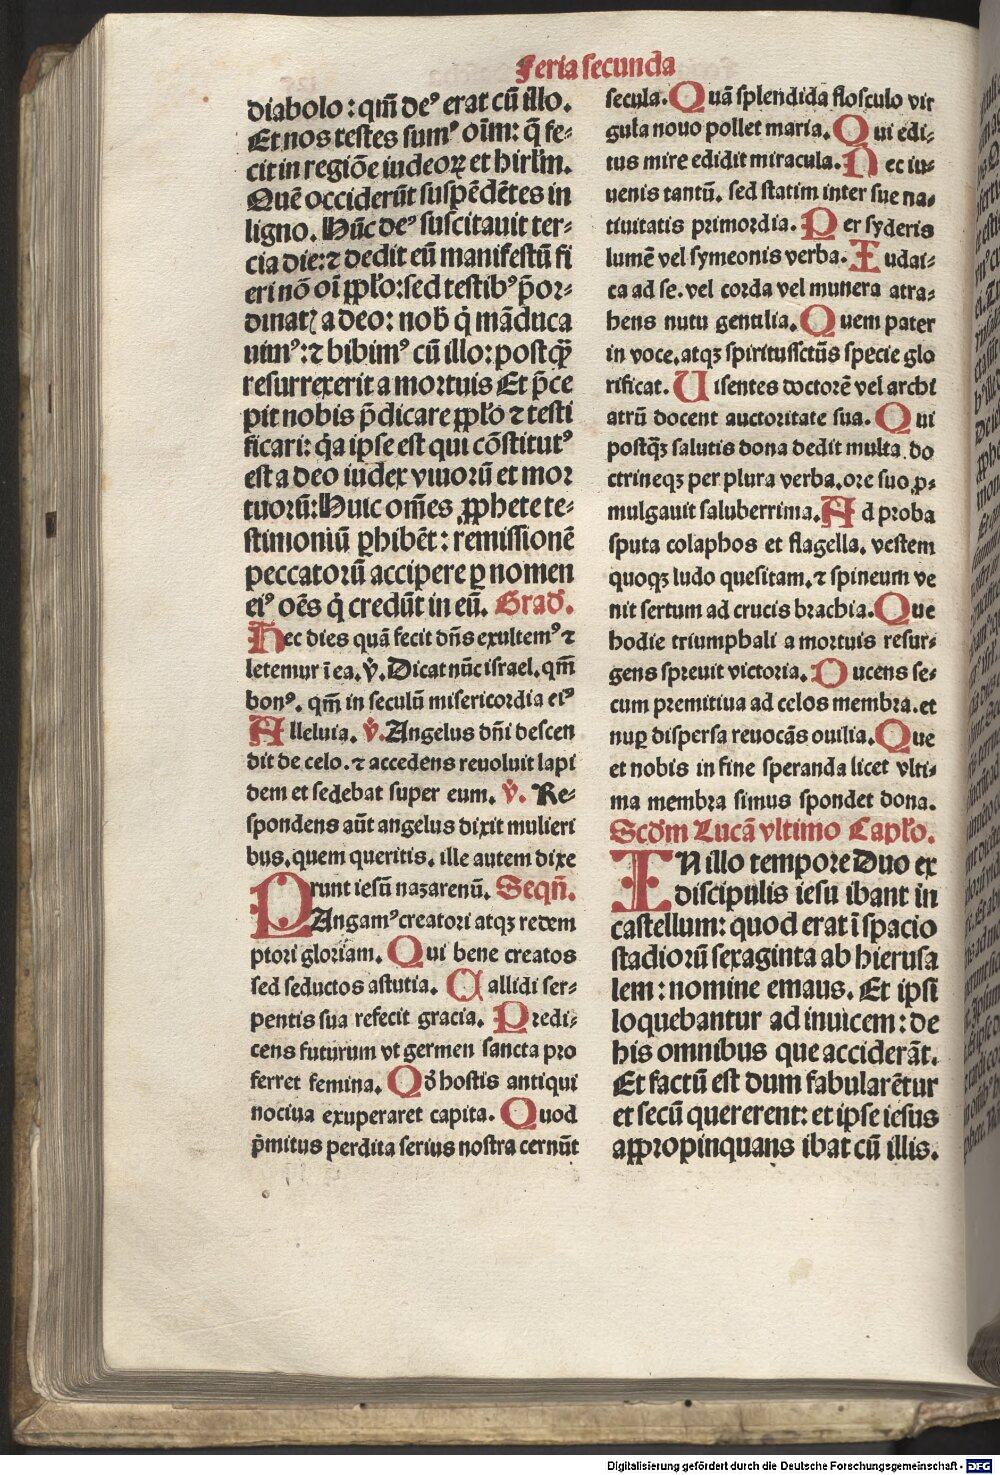 Feria secunda
diabolo: qm̄ deꝰ erat cū illo.
Et nos testes sumꝰ oīm: q̄ fe⸗
cit in regiōe iudeoꝝ et hirlm̄.
Quē occiderūt suspēdētes in
ligno. Hūc deꝰ suscitauit ter⸗
cia die: ⁊ dedit eū manifestū fi
eri nō oī ꝓplo: sed testibꝰ p̄or⸗
dinatꝭ a deo: nob̄ q̇ māduca
uimꝰ: ⁊ bibimꝰ cū illo: postqꝫ̄
resurrexerit a mortuis Et p̄ce
pit nobis p̄dicare ꝓplo ⁊ testi
ficari: q̇a ipse est qui cōstitutꝰ
est a deo iudex viuorū et mor
tuorū: Huic om̄es ꝓphete te⸗
stimoniū ꝑhibēt: remissionē
peccatorū accipere ꝑ nomen
eiꝰ oēs q̇ credūt in eū. Grad̄.
Hec dies quā fecit dn̄s exultemꝰ ⁊
letemur ī ea. v̄. Dicat nūc israel. qm̄
bonꝰ. qm̄ in seculū misericordia eiꝰ
Alleluia. v̄. Angelus dn̄i descen
dit de celo. ⁊ accedens reuoluit lapi
dem et sedebat super eum. v̄. Re⸗
spondens aūt angelus dixit mulieri
bus. quem queritis. ille autem dixe
runt iesū nazarenū. Seqn̄.
PAngamꝰ creatori atqꝫ redem
ptori gloriam. Qui bene creatos
sed seductos astutia. Callidi ser⸗
pentis sua refecit gracia. Predi⸗
cens futurum vt germen sancta pro
ferret femina. Qd̄ hostis antiqui
nociua exuperaret capita. Quod
p̄mitus perdita serius nostra cernūt
secula. Quā splendida flosculo vir
gula nouo pollet maria. Qui edi⸗
tus mire edidit miracula. Nec iu⸗
uenis tantū. sed statim inter sue na⸗
tiuitatis primordia. Per syderis
lumē vel symeonis verba. Iudai⸗
ca ad se. vel corda vel munera atra⸗
hens nutu gentilia. Quem pater
in voce. atqꝫ spiritussctūs specie glo
rificat. Uisentes doctorē vel archi
atrū docent auctoritate sua. Qui
postqꝫ salutis dona dedit multa. do
ctrineqꝫ per plura verba. ore suo ꝓ⸗
mulgauit saluberrima. Ad proba
sputa colaphos et flagella. vestem
quoqꝫ ludo quesitam. ⁊ spineum ve
nit sertum ad crucis brachia. Que
hodie triumphali a mortuis resur⸗
gens spreuit victoria. Ducens se⸗
cum premitiua ad celos membra. et
nuꝑ dispersa reuocās ouilia. Que
et nobis in fine speranda licet vlti⸗
ma membra simus spondet dona.
Scd̄m Lucā vltimo Caplo.
IN illo tempore Duo ex
discipulis iesu ibant in
castellum: quod erat ī spacio
stadiorū sexaginta ab hierusa
lem: nomine emaus. Et ipsi
loquebantur ad inuicem: de
his omnibus que acciderāt.
Et factū est dum fabularētur
et secū quererent: et ipse iesus
appropinquans ibat cū illis.
Digitalisierung gefördert durch die Deutsche Forschungsgemeinschaft - DFG